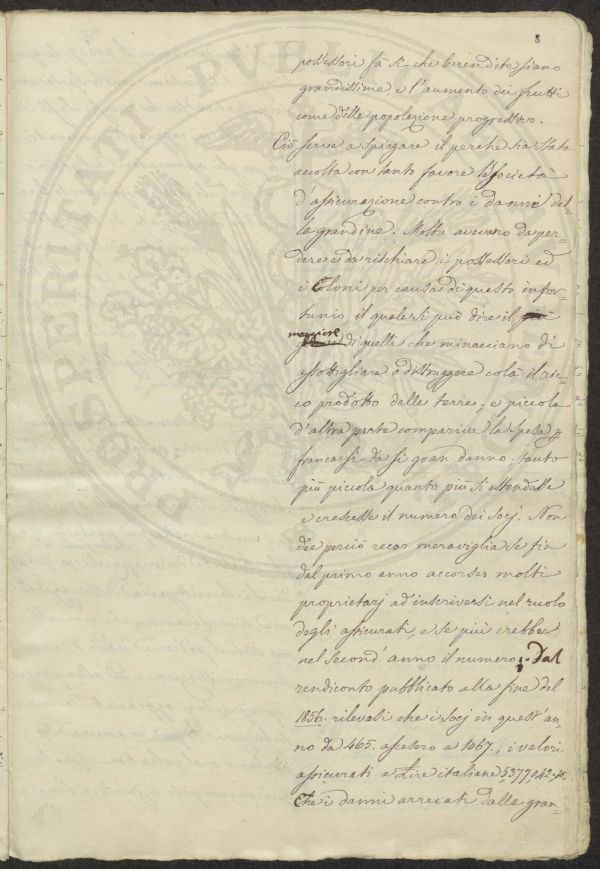 8
possessori fa sì che le rendite siano
grandissime, e l'aumento dei frutti
come della popolazione progressivo.
Ciò serve a spiegare il perchè ha stata
accolta con tanto favore la Società
d'assicurazione contro i danni del-
la grandine. Molto avevano da per-
dere e da rischiare i possessori ed
i Coloni per causa di questo infor-
tunio il quale si può dire il
maggiore di quelli che minacciano di
assottigliare o distruggere colà il ric-
co prodotto delle terre; e piccola
d'altra parte compariva la spesa p
francarsi da sì gran danno, tanto
più piccola quanto più si estendesse
e crescesse il numero dei Socj. Non
dee perciò recar meraviglia se fin
dal primo anno accorser molti
proprietarj ad inscriversi nel ruolo
degli assicurati, e se più crebbe
nel second'anno il numero. Dal
rendiconto pubblicato alla fine del
1856. rilevasi che i Socj in quest'an-
no da 465. ascesero a 1067., i valori
assicurati a Lire italiane 5,377,042.
Che i danni arrecati dalla gran-
PROSPERI PUBLICA